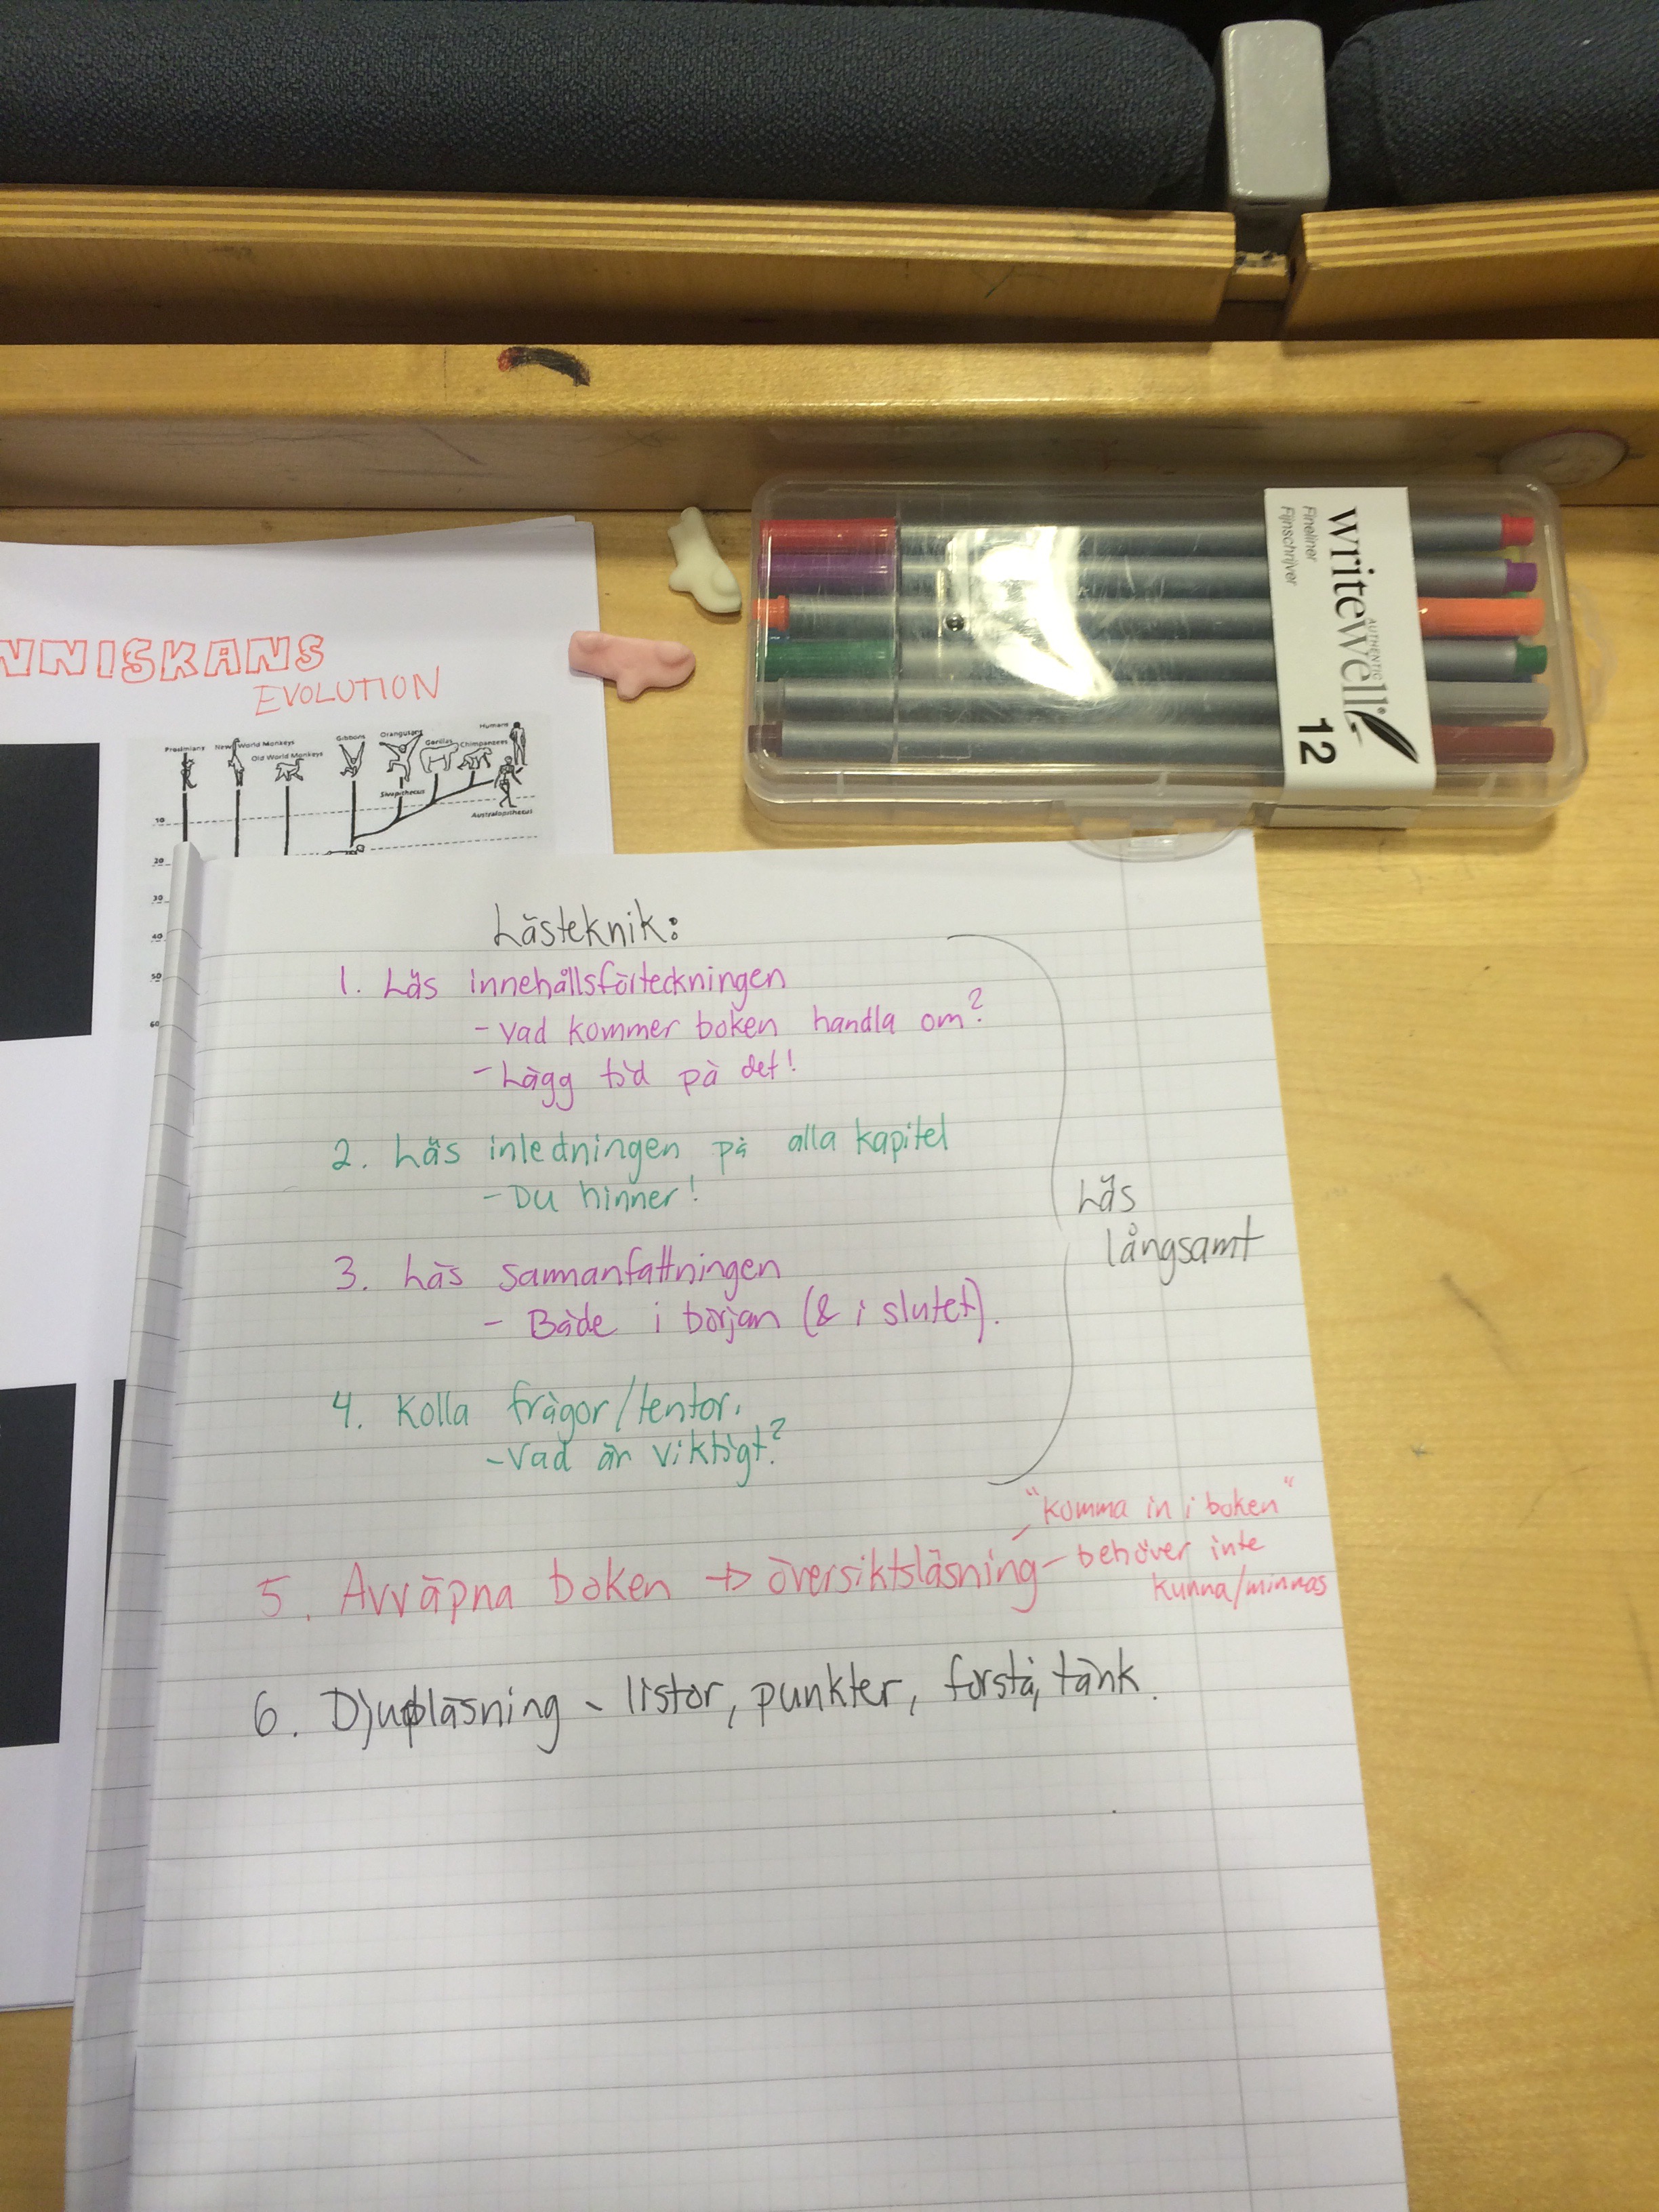 writewell®
AUTHENTIC
Fineliner
Fijnschrijver
12
NNISKANS
EVOLUTION
Prosimians
New World Monkeys
Old World Monkeys
Gibbons
Orangutans
Gorillas
Chimpanzees
Humans
Sivapithecus
Australopithecus
10
20
30
40
50
60
Lästeknik:
1. Läs innehållsförteckningen
- vad kommer boken handla om?
- Lägg tid på det!
2. Läs inledningen på alla kapitel
- Du hinner!
3. Läs sammanfattningen
- Både i början (& i slutet).
4. Kolla frågor/tentor.
- Vad är viktigt?
Läs
långsamt
"komma in i boken"
5. Avväpna boken → översiktsläsning - behöver inte
kunna/minnas
6. Djupläsning - listor, punkter, förstå, tänk.